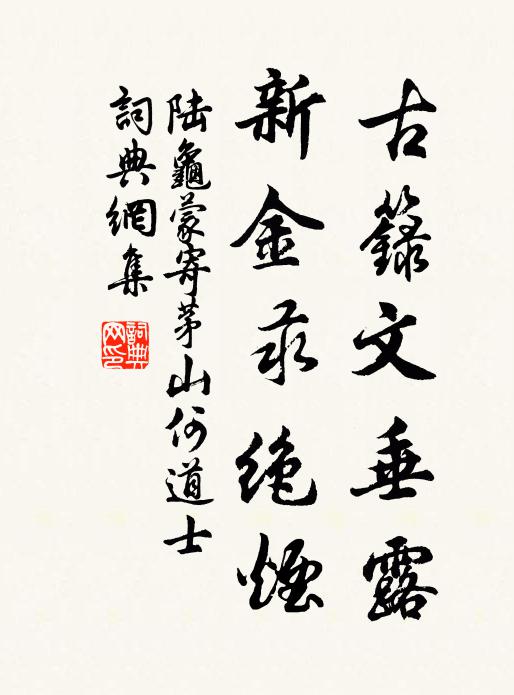 古籙文垂露
新金汞絶煙
陸龜蒙寄茅山何道士
詞典網集
詞典网印